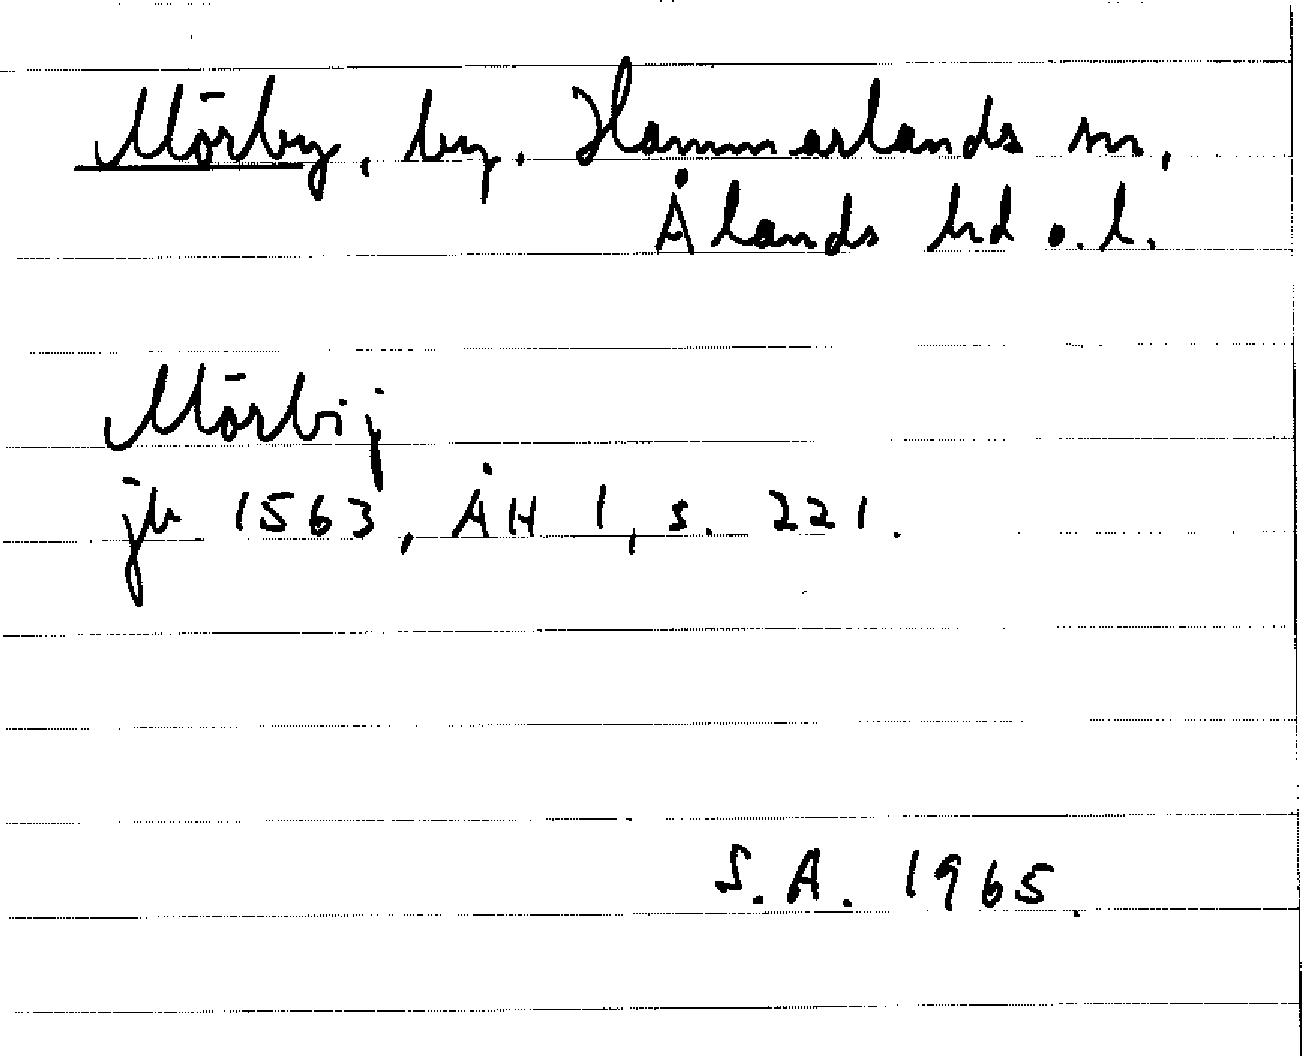 Mörby, by. Hammarlands sn,
Ålands hd o. l.
Mörbij
jb 1563, ÅH 1, s. 221.
S.A. 1965.